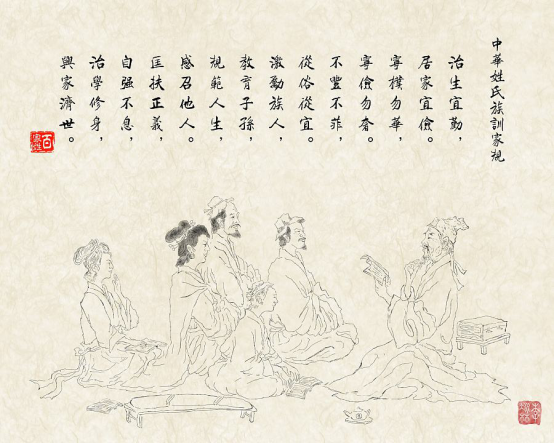 中華姓氏族訓家規
治生宜勤，
居家宜儉。
寧樸勿華，
寧儉勿奢。
不豐不菲，
從俗從宜。
激勵族人，
教育子孫，
規範人生，
感召他人。
匡扶正義，
自强不息，
治學修身，
興家濟世。
百家姓